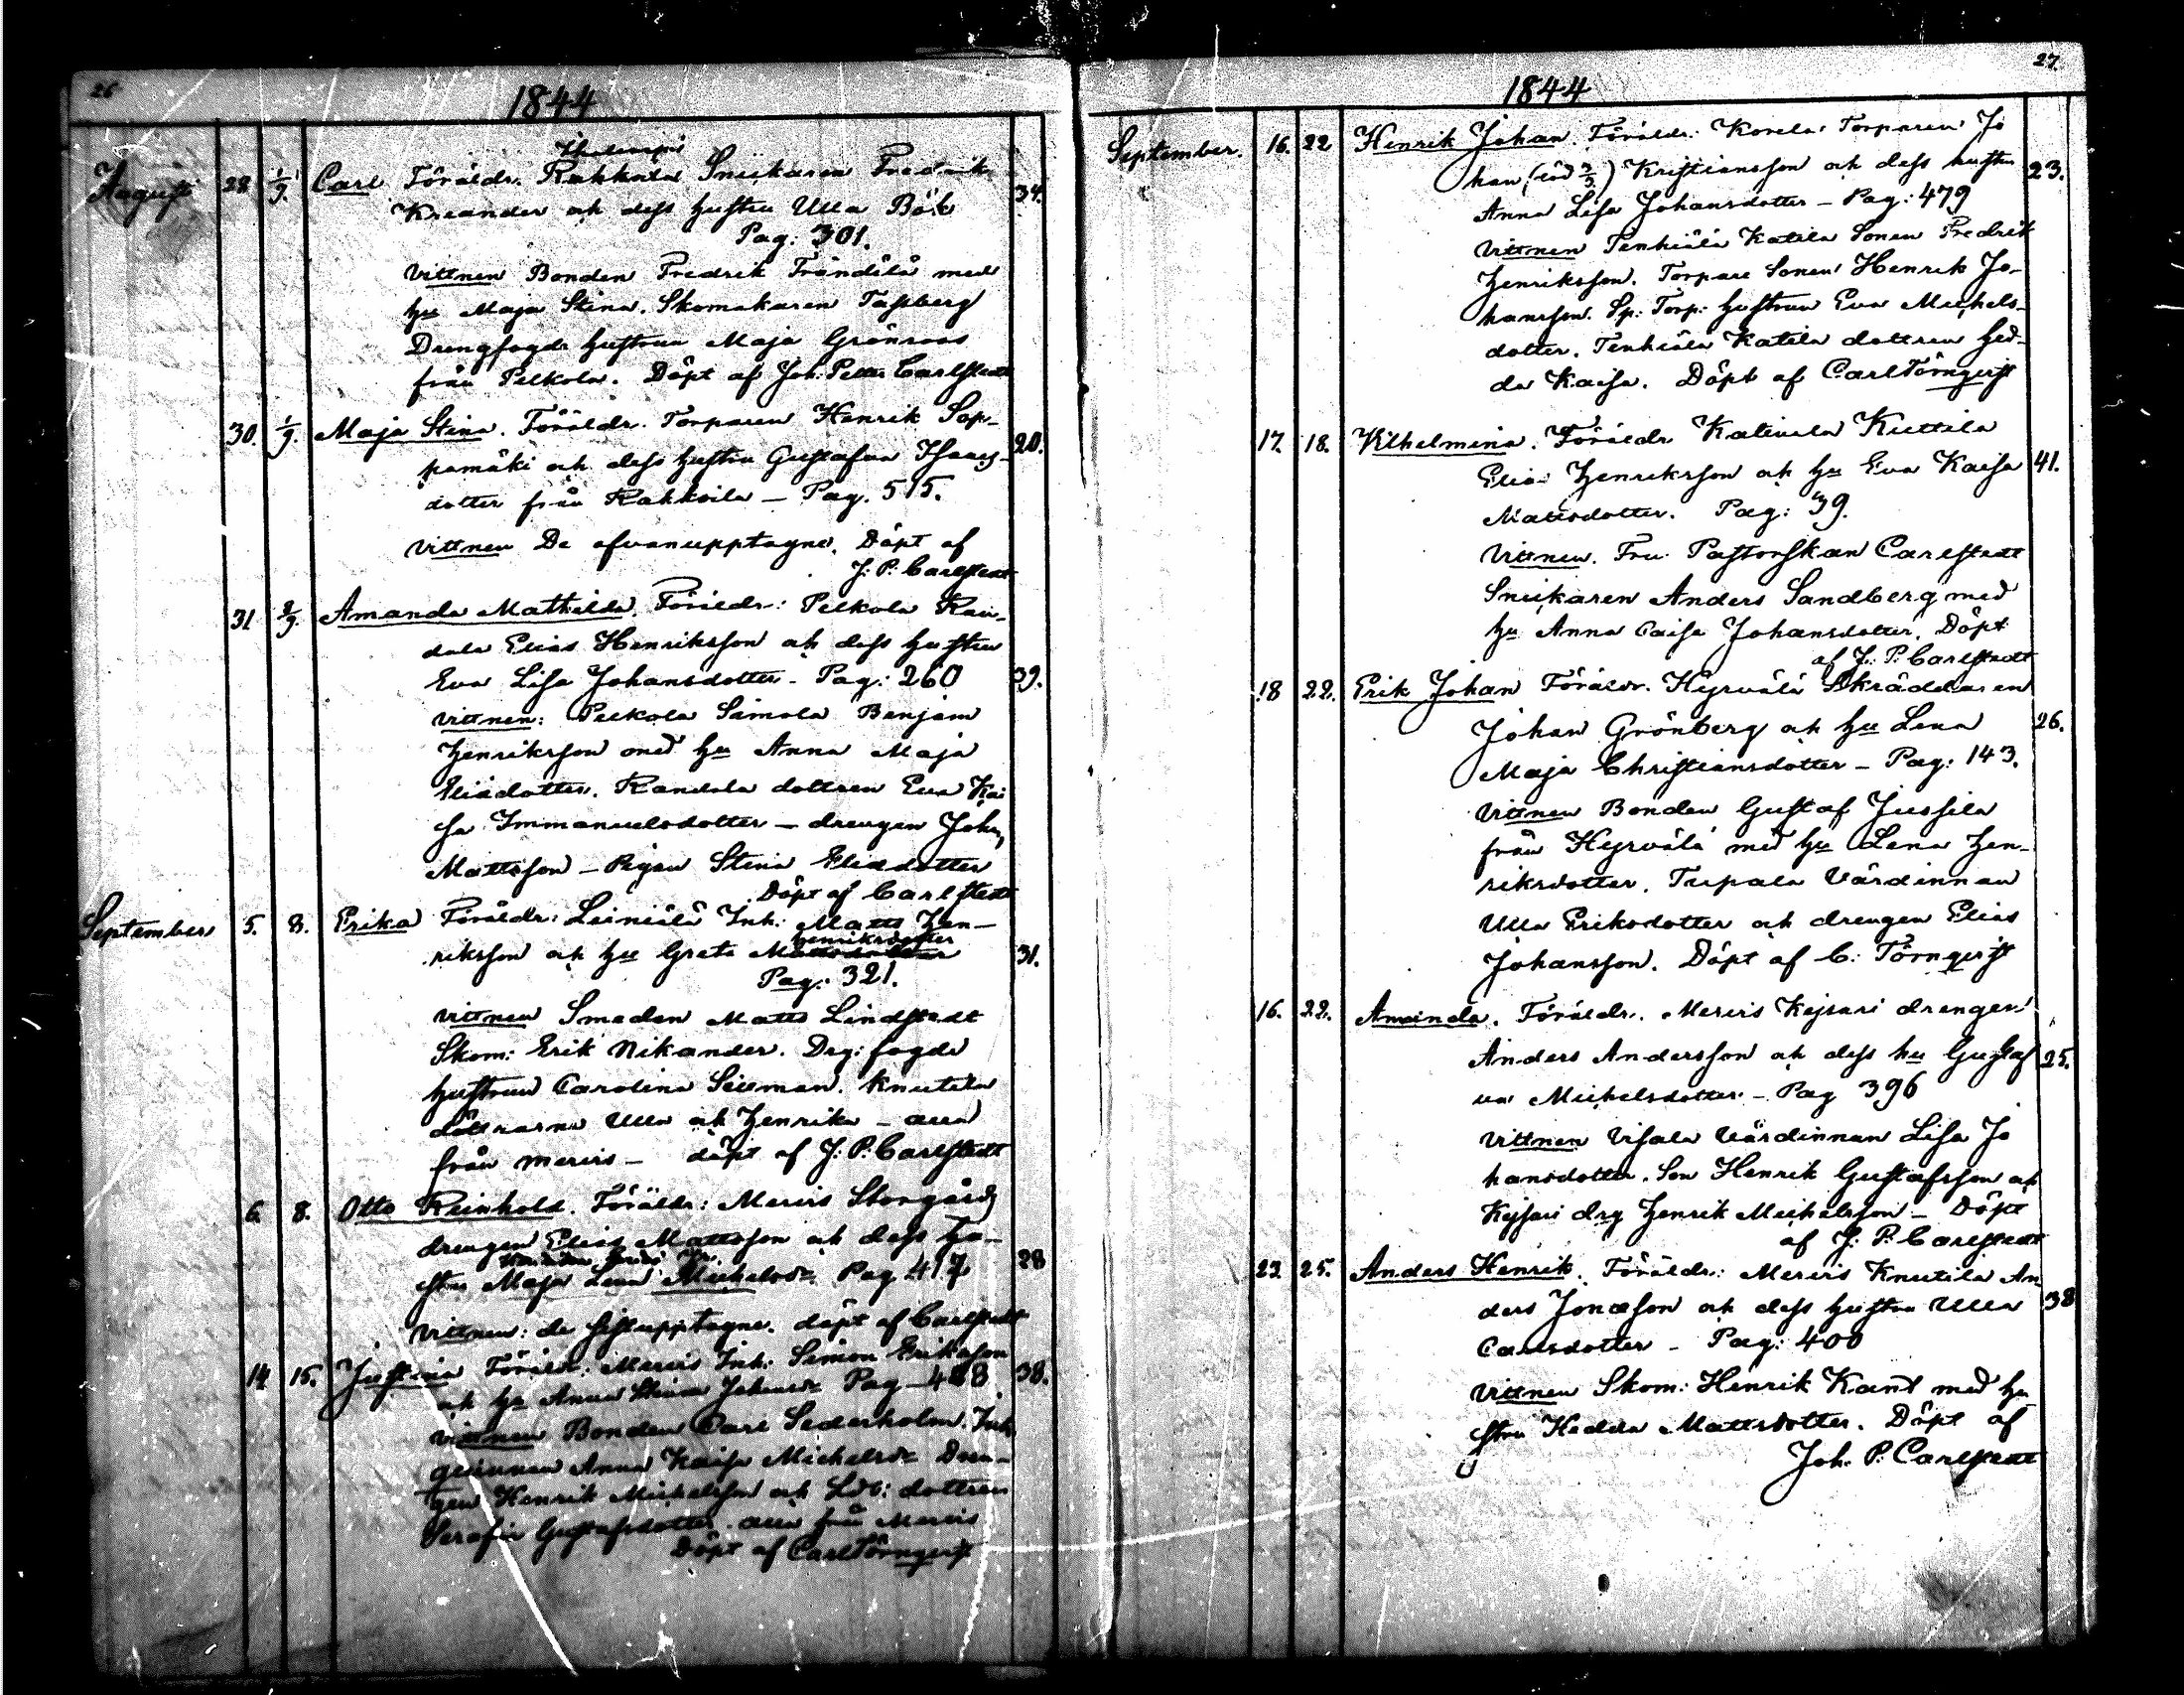 26
1844
Augusti 28. 1/9. Carl Föräldr. Rahkala Snickaren Fredrik 34.
Kreander och dess hustru Ulla Böök
Pag: 301.
Vittnen Bonden Fredrik Frändilä med
hu Maja Stina. Skomakaren Tassberg
Drengfogde hustrun Maja Grönroos
från Pelkola. Döpt af Joh: Petter Carlstedt
30. 1/9. Maja Stina. Föräldr. Torparen Henrik Sop- 20.
pamäki och dess hustru Gustafva Isaacs-
dotter från Rahkoila — Pag. 515.
Vittnen De ofvanupptagne. Döpt af
J: P: Carlstedt
31 8/9. Amanda Mathilda. Föräldr.: Pelkola Ran-
dala Elias Henriksson och dess hustru
Eva Lisa Johansdotter - Pag: 260 39.
Vittnen: Pelkola Simola Benjam
Henriksson med hu Anna Maja
Eliasdotter. Randala dottren Eva Kai
sa Immanuelsdotter — drengen Joh:
Mattsson — Pigan Stina Eliasdotter
Döpt af Carlstedt
September 5. 8. Erika Föräldr: Leiniälä Inh: Matts Hen-
henriksdotter
riksson och hu Greta Mattsdotter 31.
Pag: 321.
Vittnen Smeden Matts Lindstedt
Skom: Erik Nikander. Drg: fogde
hustrun Carolina Seseman. Knutila
döttrarna Ulla och Henrika — alla
från Mervis — döpt af J: P: Carlstedt
6. 8. Otto Reinhold. Föräldr: Mervis Storgårds
drengen Elias Mattsson och dess hu-
stru Maja Lena Michelsdr. Pag 417 28
Vittnen: de sistupptagne. döpt af Carlstedt
14 15. Justina Föräldr: Mervis Inh: Simon Eriksson
och hu Anna Stina Johansdr Pag — 488. 38.
Vittnen Bonden Carl Sederholm. Inh
gesinnan Anna Kaisa Michelsdr Dren-
gen Henrik Michelsson och Ldb: dottren
Serafia Gustafsdotter. alla från Mervis
Döpt af Carl Törnqvist
27.
1844
September. 16. 22 Henrik Johan. Föräldr: Korela Torparen Jo
han, (död 3/5) Kristiansson och dess hustru 23.
Anna Lisa Johansdotter — Pag: 479
Vittnen Tenhiälä Katila Sonen Fredrik
Henriksson. Torpare Sonen Henrik Jo-
hansson. Sp: Torp: hustrun Eva Michels-
dotter. Tenhiälä Katila dottren Hed-
da Kaisa. Döpt af Carl Törnqvist
17. 18. Vilhelmina. Föräldr Kativala Kuttila
Elias Henriksson och hu Eva Kaisa 41.
Mattsdotter. Pag: 39.
Vittnen. Fru Pastorskan Carlstedt
Snickaren Anders Sandberg med
hu Anna Caisa Johansdotter. Döpt
af J: P: Carlstedt
18 22. Erik Johan Föräldr. Hyrvälä Skräddaren
Johan Grönberg och hu Lena 26.
Maja Christiansdotter — Pag: 143.
Vittnen Bonden Gustaf Jussila
från Hyrvälä med hu Lena Hen-
riksdotter. Tupala Värdinnan
Ulla Eriksdotter och drengen Elias
Johansson. Döpt af C: Törnqvist
16. 22. Amanda. Föräldr. Mervis Kejsari drengen
Anders Andersson och dess hu Gustaf 25.
va Michelsdotter — Pag 396
Vittnen Visala Värdinnan Lisa Jo
hansdotter. Son Henrik Gustafsson och
Kejsari drg Henrik Michelsson — Döpt
af J: P: Carlstedt
23. 25. Anders Henrik. Föräldr: Mervis Knutila An
ders Jonasson och dess hustru Ulla 38
Carlsdotter — Pag: 400
Vittnen Skom: Henrik Kant med hu
stru Hedda Mattsdotter. Döpt af
Joh. P: Carlstedt